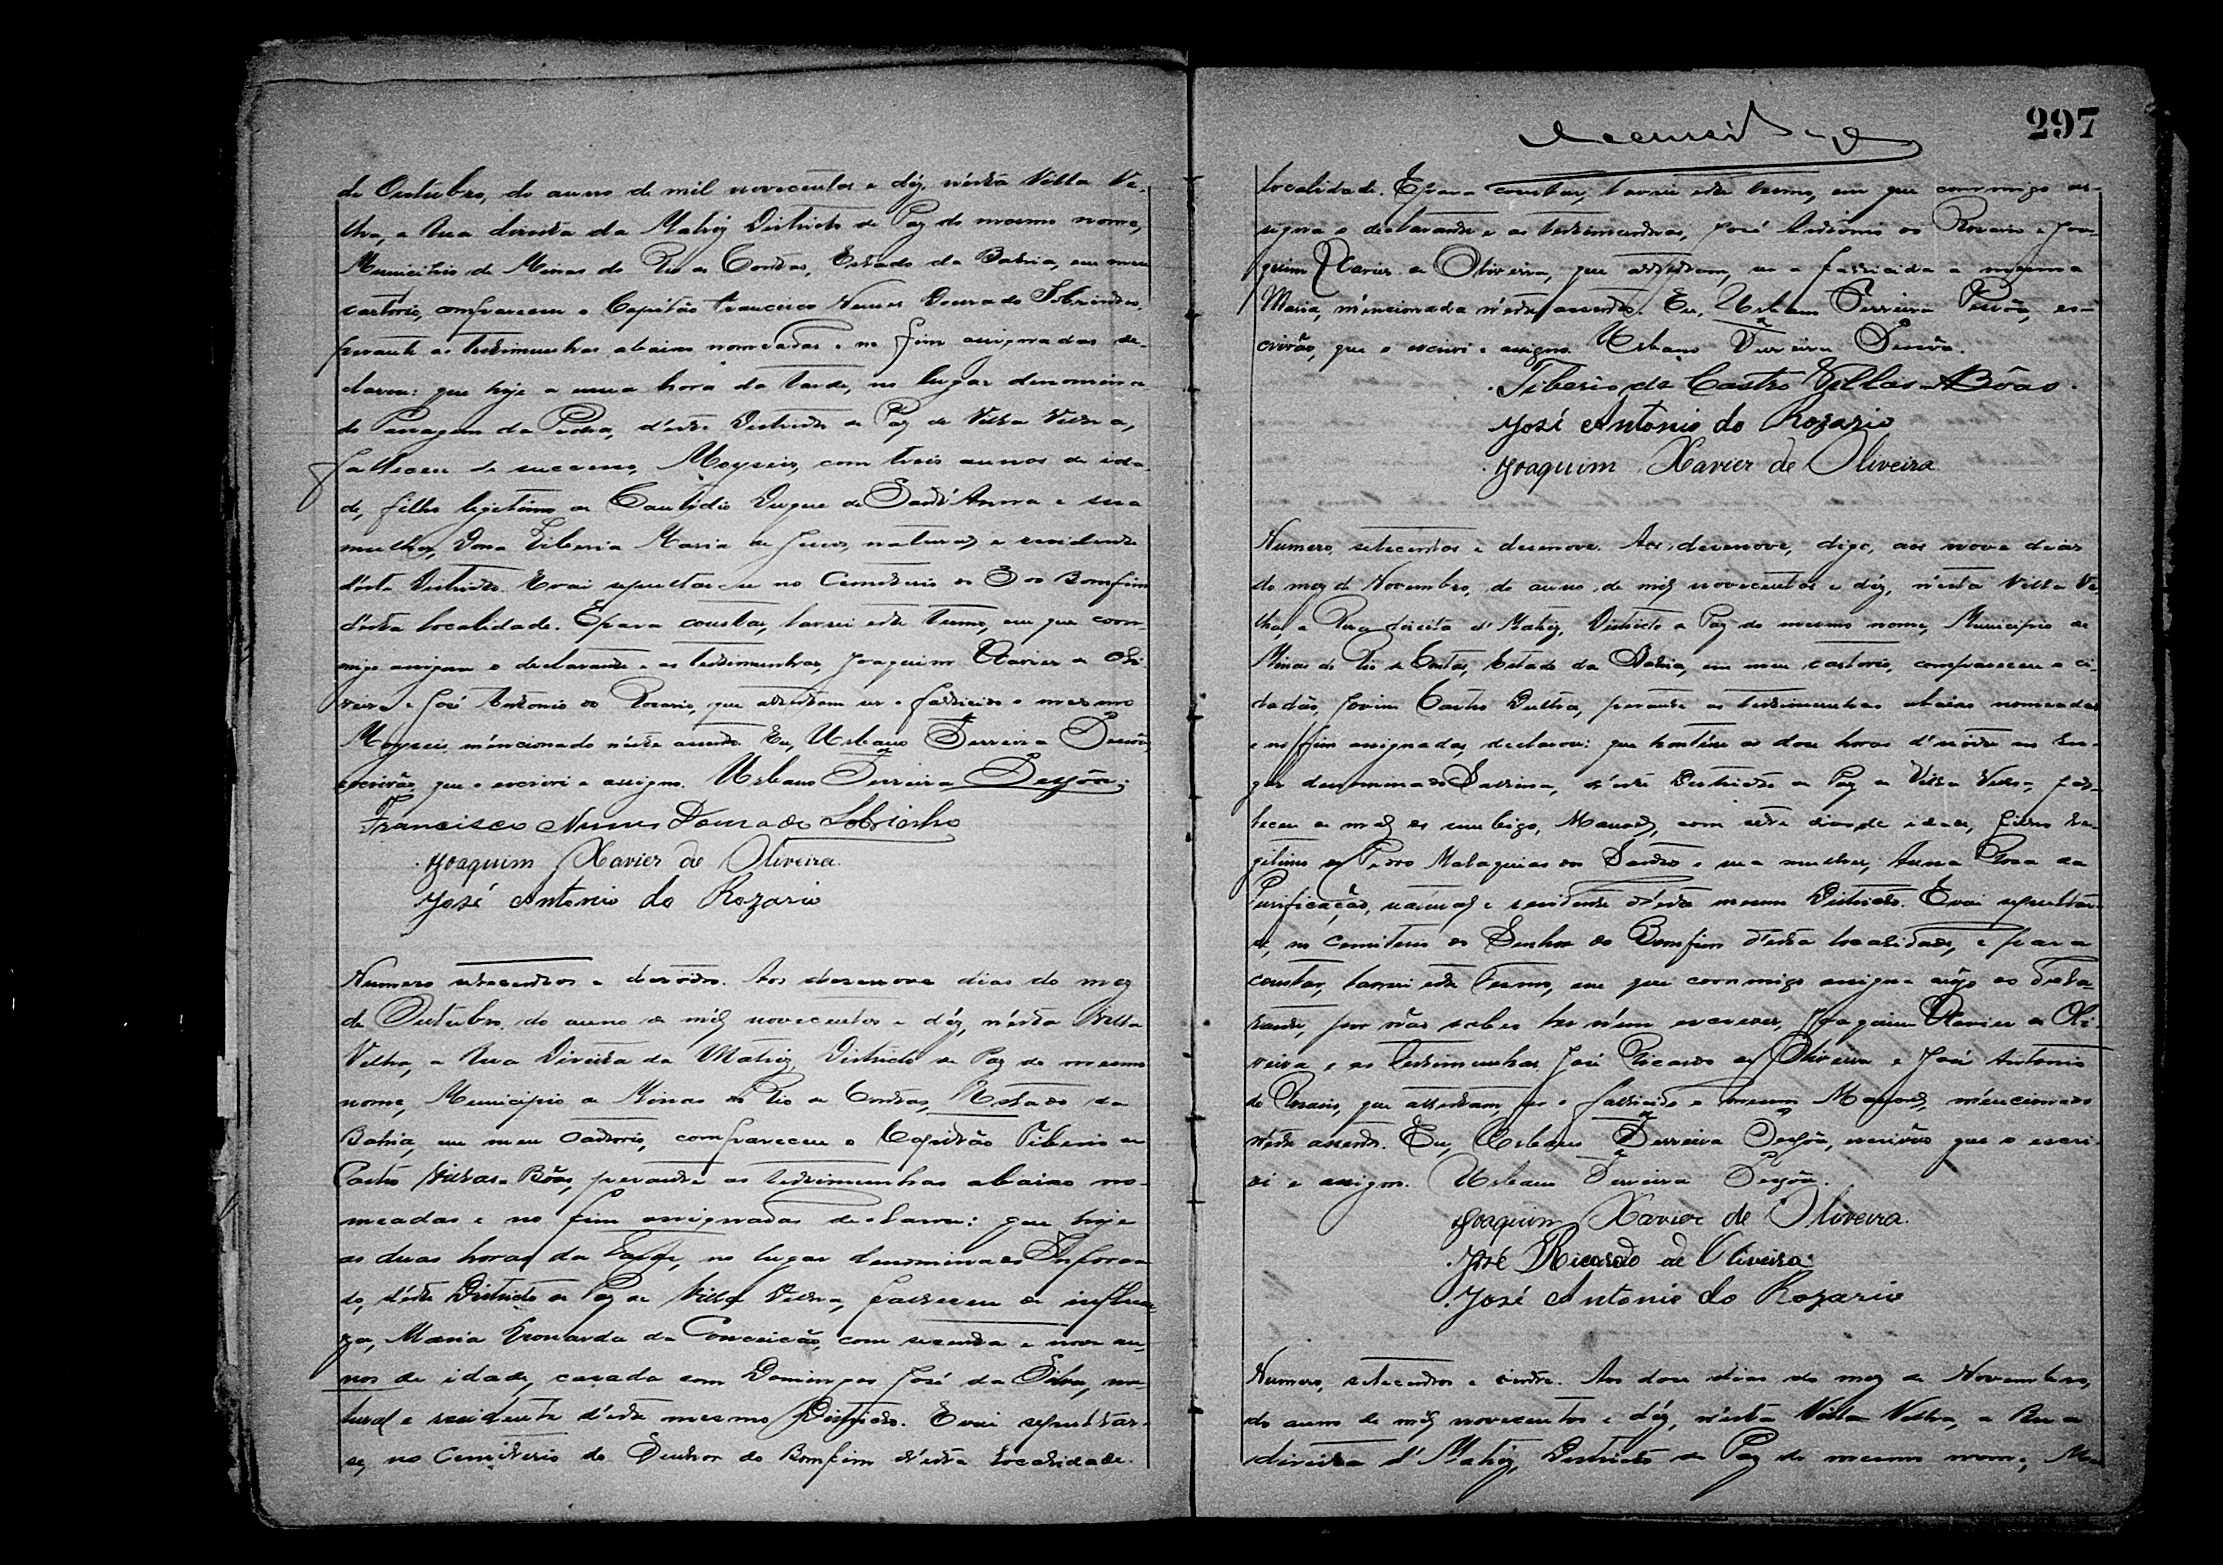 de Outubro, do anno de mil novecentos e déz, n'esta Villa Ve-
lha, a Rua direita da Matriz Districto de Paz do mesmo nome,
Municipio de Minas do Rio de Contas, Estado da Bahia, em meu
cartorio, compareceu o Capitão Francisco Nunes Dourado Sobrinho,
perante as testimunhas abaixo nomeadas e no fim assignadas de-
clarou: que hoje a uma hora da tarde, no lugar denomina-
do Passagem da Pedra, d'este Districto de Paz de Villa Velha,
falleceu de successo, Moyseis, com treis annos de ida-
de, filho legitimo de Cantidio Duque de Sant'Anna e sua
mulher, Dona Liberia Maria de Jesus, natural e residente
d'esta Districto. E vai sepultar-se no Cemiterio do S. do Bomfim
d'esta localidade. E para constar, lavrei este termo, em que com-
migo assigna o declarante e as testimunhas, Joaquim Xavier de Oli-
veira e José Antonio do Rosario, que attestam ser o fallecido o mesmo
Moyseis, mencionado n'este assento. Eu, Urbano Ferreira Pessôa,
escrivão, que o escrivi e assigno. Urbano Ferreira Pessôa.
Francisco Nunes Dourado Sobrinho
Joaquim Xavier de Oliveira.
José Antonio do Rozario
Numero setecentos e desoito. Aos desenove dias do mez
de Outubro, do anno de mil novecentos e déz, n'esta Villa
Velha, a Rua Direita da Matriz, Districto de Paz do mesmo
nome, Municipio de Minas do Rio de Contas, Estado da
Bahia, em meu Cartorio, compareceu o Capitão Tiberio de
Castro Villas-Bôas, perante as testimunhas abaixo no-
meadas e no fim assignadas declarou: que hoje
as duas horas da tarde, no lugar denominado
do, d'este Districto de Paz de Villa Velha, falleceu de influen-
za, Maria Leonarda da Conceição, com secenta e nove an-
nos de idade, casada com Domingos José da Silva, na-
tural e residente d'este mesmo Districto. E vai sepultar-
se, no Cemiterio do Senhor do Bomfim d'esta localidade.
297
localidade. E para constar, lavrei este termo, em que commigo as-
signa o declarante e as testimunhas, José Antonio do Rosario e Joa-
quim Xavier de Oliveira, que attestam, ser a fallecida a mesma
Maria, mencionada n'este assento. Eu, Urbano Ferreira Pessôa, es-
crivão, que o escrivi e assigno. Urbano Ferreira Pessôa.
Tiberio de Castro Villas-Bôas.
José Antonio do Rozario
Joaquim Xavier de Oliveira
Numero, setecentos e desenove. Aos desenove, digo, aos nove dias
do mez de Novembro, do anno, de mil novecentos e déz, n'esta Villa Ve
lha, a Rua direita d'Matriz, Districto de Paz do mesmo nome, Municipio de
Minas do Rio de Contas, Estado da Bahia, em meu cartorio, compareceu o ci-
dadão, Jovino Castro Dultra, perante as testimunhas abaixo nomeadas
e no fim assignadas, declarou: que hontem as dose horas d'noite no lu-
gar denominado, d'este Districto de Paz de Villa Velha, fal-
leceu de mal do umbigo, Manoel, com sete dias de idade, filho le-
gitimo de Pedro Malaquias dos Santos e sua mulher, Anna Rosa da
Purificação, natural e residente d'esta mesmo Districto. E vai sepultar-
se, no Cemiterio do Senhor do Bomfim d'esta localidade, e para
constar, lavrei este termo, em que commigo assigna rôgo do decla-
rante, por não saber ler nem escrever, Joaquim Xavier de Oli-
veira e as testimunhas José Ricardo de Oliveira e José Antonio
do Rosario, que attestam, ser o fallecido o mesmo Manoel, mencionado
n'este assento. Eu, Urbano Ferreira Pessôa, escrivão que o escri-
vi e assigno. Urbano Ferreira Pessôa.
Joaquim Xavier de Oliveira.
José Ricardo de Oliveira.
José Antonio do Rozario
Numero, setecentos e vinte. Aos dose dias do mez de Novembro,
do anno de mil novecentos e déz, n'esta Villa Velha, a Rua
direita d'Matriz, Districto de Paz do mesmo nome, Mu